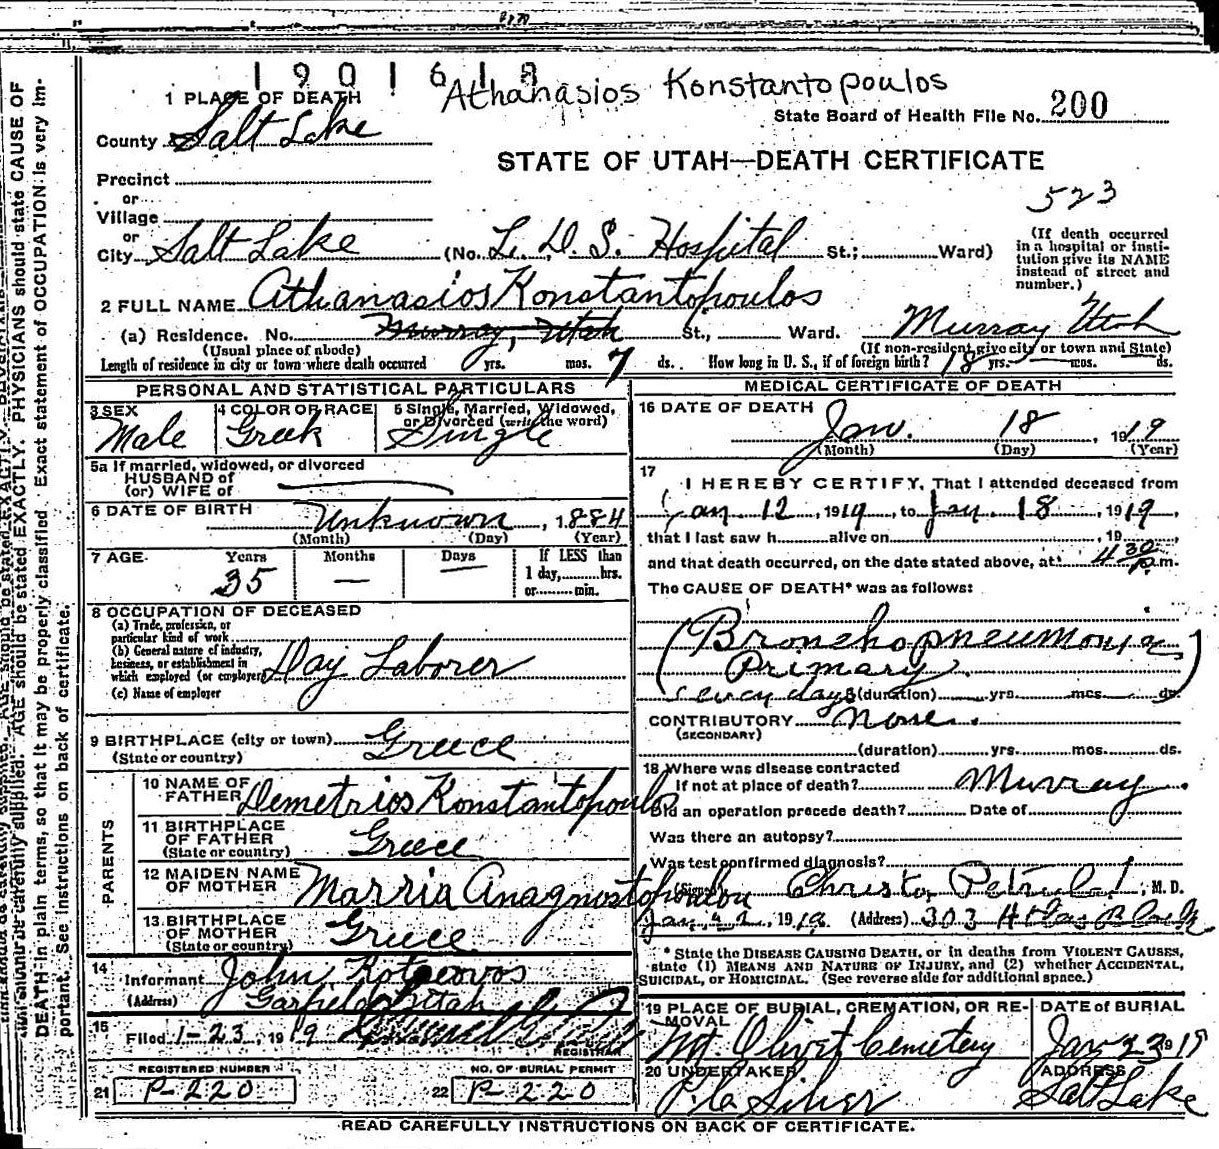 1901618
Athanasios Konstantopoulos
1 PLACE OF DEATH
State Board of Health File No. 200
County Salt Lake
STATE OF UTAH—DEATH CERTIFICATE
Precinct
or
523
Village
or
City Salt Lake (No. L. D. S. Hospital St.; Ward)
(If death occurred in a hospital or institution give its NAME instead of street and number.)
2 FULL NAME Athanasios Konstantopoulos
(a) Residence. No. Murray, Utah St., Ward. Murray Utah
(Usual place of abode) (If non-resident give city or town and State)
Length of residence in city or town where death occurred yrs. mos. 7 ds. How long in U. S., if of foreign birth? 18 yrs. mos. ds.
PERSONAL AND STATISTICAL PARTICULARS
3 SEX Male
4 COLOR OR RACE Greek
5 Single, Married, Widowed, or Divorced (write the word) Single
5a If married, widowed, or divorced
HUSBAND of
(or) WIFE of
6 DATE OF BIRTH Unknown, 1884
(Month) (Day) (Year)
7 AGE Years Months Days If LESS than
35 — — 1 day, hrs.
or min.
8 OCCUPATION OF DECEASED
(a) Trade, profession, or
particular kind of work
(b) General nature of industry,
business, or establishment in
which employed (or employer) Day Laborer
(c) Name of employer
9 BIRTHPLACE (city or town) Greece
(State or country)
PARENTS
10 NAME OF FATHER Demetrios Konstantopoulos
11 BIRTHPLACE OF FATHER Greece
(State or country)
12 MAIDEN NAME OF MOTHER Marria Anagnostopoulou
13 BIRTHPLACE OF MOTHER Greece
(State or country)
14 Informant John
(Address) Garfield Utah
15 Filed 1-23, 1919
REGISTRAR
REGISTERED NUMBER
21 P-220
NO. OF BURIAL PERMIT
22 P-220
MEDICAL CERTIFICATE OF DEATH
16 DATE OF DEATH
Jan. 18, 1919
(Month) (Day) (Year)
17
I HEREBY CERTIFY, That I attended deceased from
Jan 12, 1919, to Jan. 18, 1919,
that I last saw h alive on , 19 ,
and that death occurred, on the date stated above, at 4 30 p.m.
The CAUSE OF DEATH* was as follows:
(Bronchopneumonia
Primary)
seven days (duration) yrs. mos. ds.
CONTRIBUTORY None.
(SECONDARY)
(duration) yrs. mos. ds.
18 Where was disease contracted
If not at place of death? Murray.
Did an operation precede death? Date of
Was there an autopsy?
Was test confirmed diagnosis?
(Signed) , M. D.
Jan 22, 1919 (Address) 303 Atlas Block
* State the DISEASE CAUSING DEATH, or in deaths from VIOLENT CAUSES,
state (1) MEANS AND NATURE OF INJURY, and (2) whether ACCIDENTAL,
SUICIDAL, or HOMICIDAL. (See reverse side for additional space.)
19 PLACE OF BURIAL, CREMATION, OR REMOVAL
Mt. Olivet Cemetery
DATE of BURIAL
Jan 23 1919
20 UNDERTAKER
ADDRESS
Salt Lake
READ CAREFULLY INSTRUCTIONS ON BACK OF CERTIFICATE.
AGE should be stated EXACTLY. PHYSICIANS should state CAUSE OF
DEATH in plain terms, so that it may be properly classified. Exact statement of OCCUPATION is very im-
portant. See instructions on back of certificate.